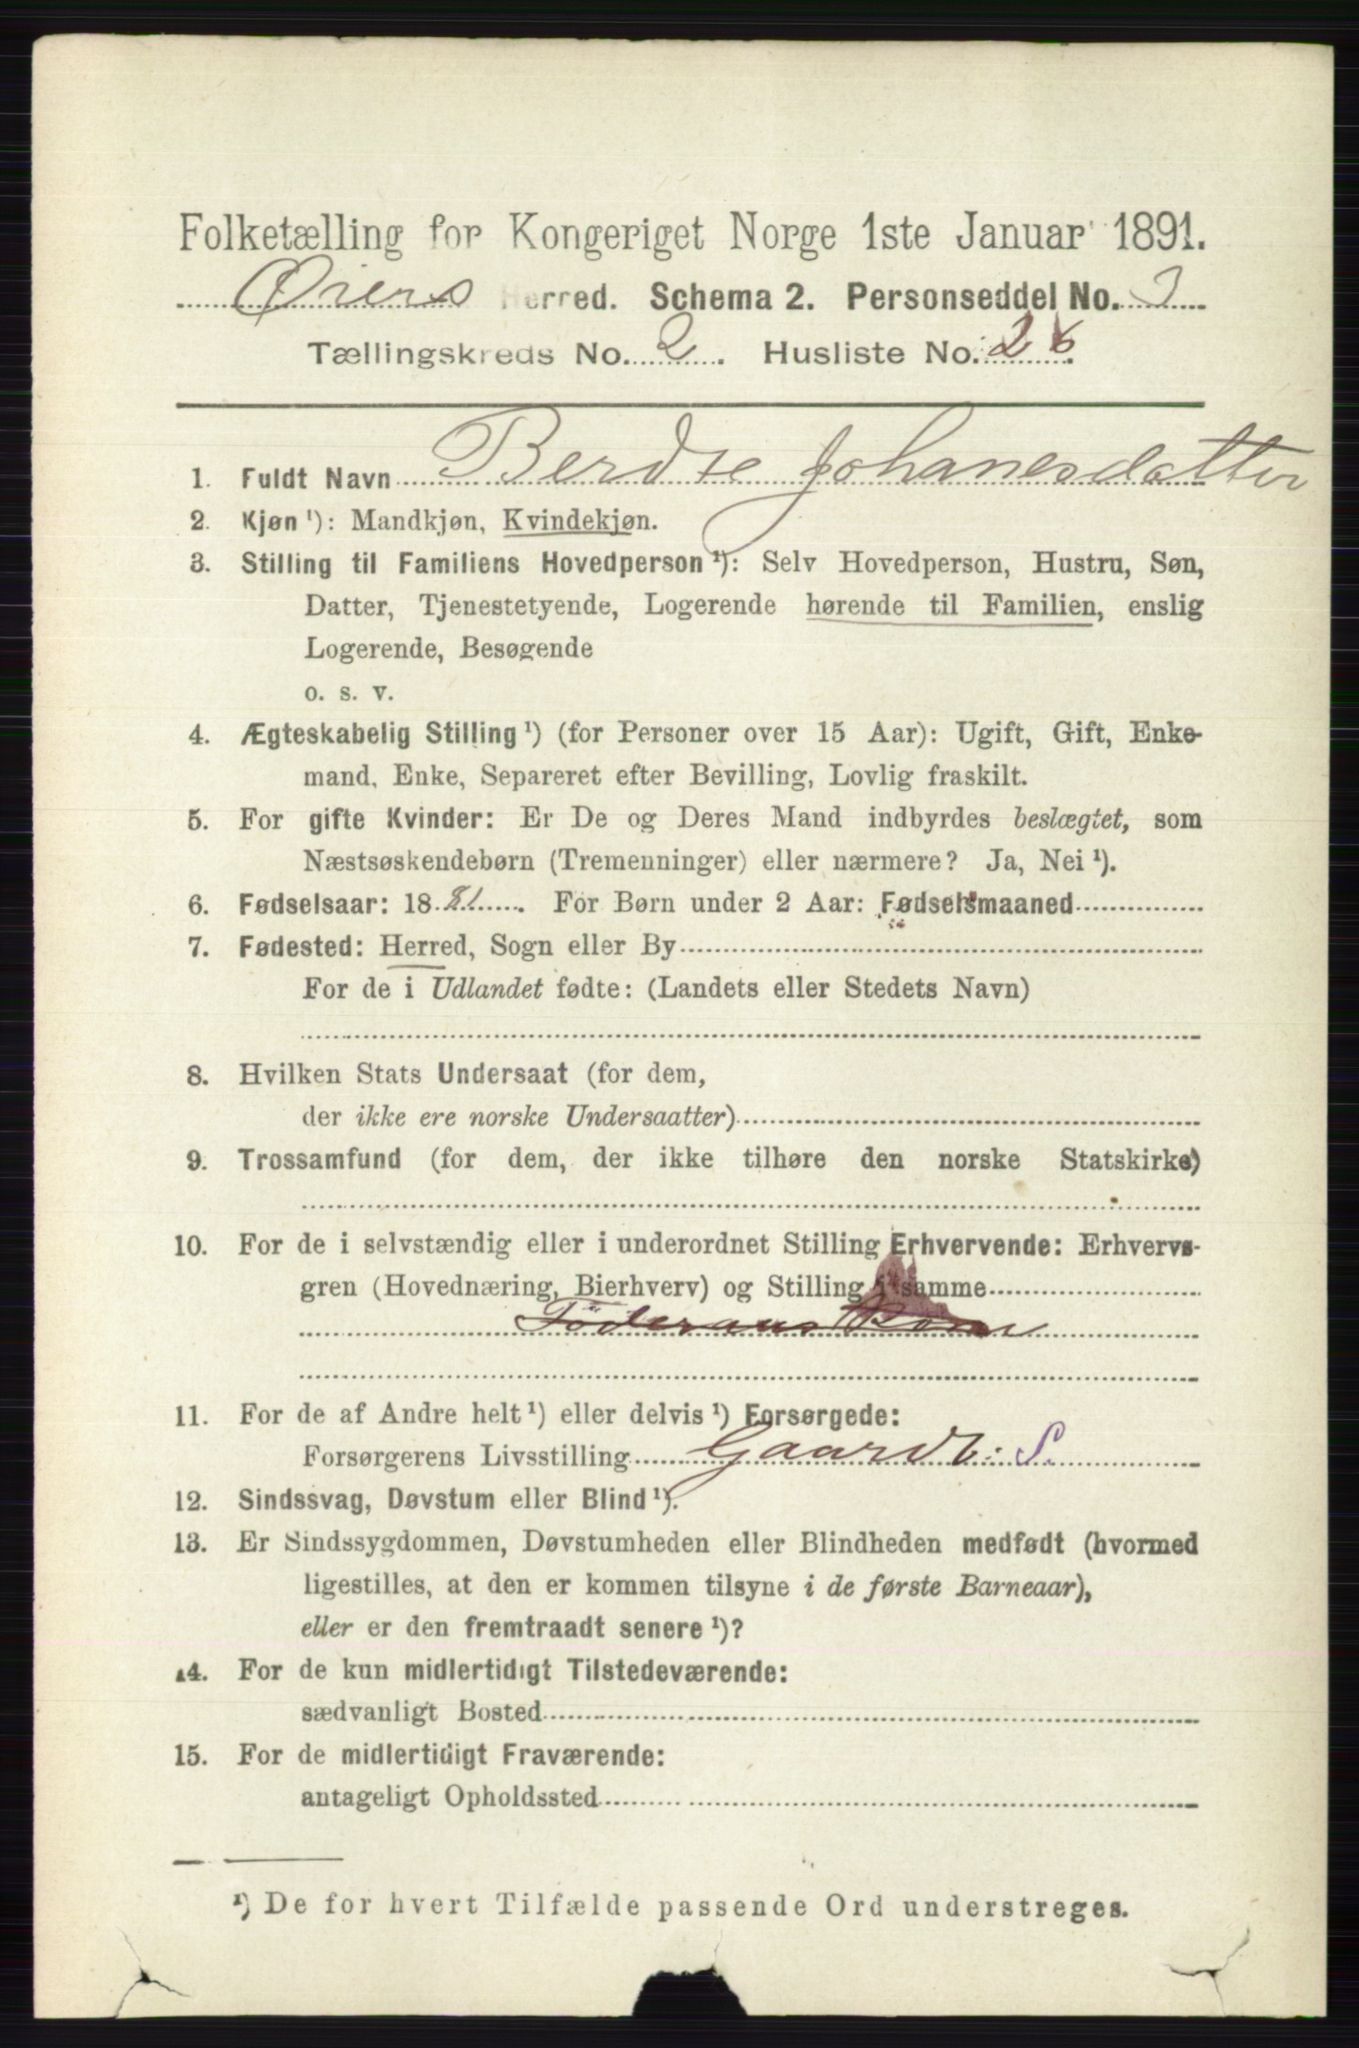 Folketælling for Kongeriget Norge 1ste Januar 1891.
Øiers Herred. Schema 2. Personseddel No. 3
Tællingskreds No. 2. Husliste No. 26.
1. Fuldt Navn Berdte Johanesdatter
2. Kjøn ¹): Mandkjøn, Kvindekjøn.
3. Stilling til Familiens Hovedperson ¹): Selv Hovedperson, Hustru, Søn,
Datter, Tjenestetyende, Logerende hørende til Familien, enslig
Logerende, Besøgende
o. s. v.
4. Ægteskabelig Stilling ¹) (for Personer over 15 Aar): Ugift, Gift, Enke-
mand, Enke, Separeret efter Bevilling, Lovlig fraskilt.
5. For gifte Kvinder: Er De og Deres Mand indbyrdes beslægtet, som
Næstsøskendebørn (Tremenninger) eller nærmere? Ja, Nei ¹).
6. Fødselsaar: 1881. For Børn under 2 Aar: Fødselsmaaned
7. Fødested: Herred, Sogn eller By
For de i Udlandet fødte: (Landets eller Stedets Navn)
8. Hvilken Stats Undersaat (for dem,
der ikke ere norske Undersaatter)
9. Trossamfund (for dem, der ikke tilhøre den norske Statskirke)
10. For de i selvstændig eller i underordnet Stilling Erhvervende: Erhvervs-
gren (Hovednæring, Bierhverv) og Stilling i samme
Föderaus
11. For de af Andre helt ¹) eller delvis ¹) Forsørgede:
Forsørgerens Livsstilling Gaardb: S.
12. Sindssvag, Døvstum eller Blind ¹).
13. Er Sindssygdommen, Døvstumheden eller Blindheden medfødt (hvormed
ligestilles, at den er kommen tilsyne i de første Barneaar),
eller er den fremtraadt senere ¹)?
14. For de kun midlertidigt Tilstedeværende:
sædvanligt Bosted
15. For de midlertidigt Fraværende:
antageligt Opholdssted
¹) De for hvert Tilfælde passende Ord understreges.